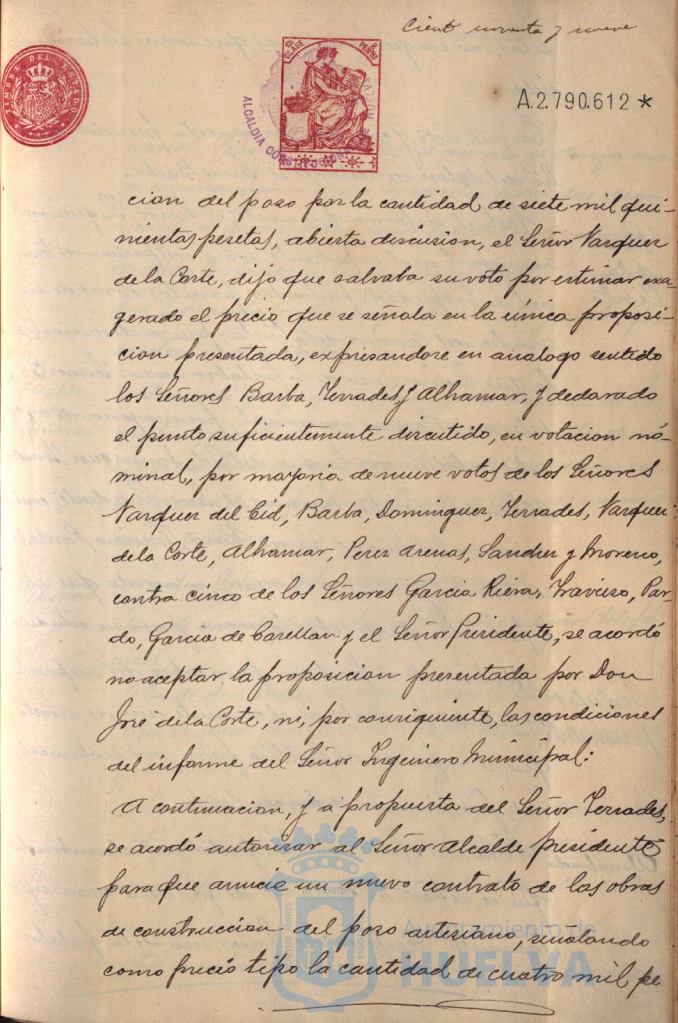 Ciento noventa y nueve
TIMBRE DEL ESTADO
CLASE
PESETAS
ALCALDIA CONSTITUCIONAL
A.2.790.612 *
cion del pozo por la cantidad de siete mil qui-
nientas pesetas, abierta discusion, el Señor Vazquez
de la Corte, dijo que salvaba su voto por estimar exa-
gerado el precio que se señala en la única proposi-
cion presentada, expresandose en analogo sentido
los Señores Barba, Terrades y Alhamar, y declarado
el punto suficientemente discutido, en votacion nó-
minal, por mayoria de nueve votos de los Señores
Vazquez del Cid, Barba, Dominguez, Terrades, Vazquez
de la Corte, Alhamar, Perez Arenas, Sanchez y Moreno,
contra cinco de los Señores Garcia Riera, Par-
do, Garcia de y el Señor Presidente, se acordó
no aceptar la proposicion presentada por Don
José de la Corte, ni, por consiguiente, las condiciones
del informe del Señor Ingeniero Municipal:
A continuacion, y a propuesta del Señor Terrades,
se acordó autorizar al Señor Alcalde presidente
para que anuncie un nuevo contrato de las obras
de construccion del pozo artesiano, señalando
como precio tipo la cantidad de cuatro mil pe
Ayuntamiento de
HUELVA